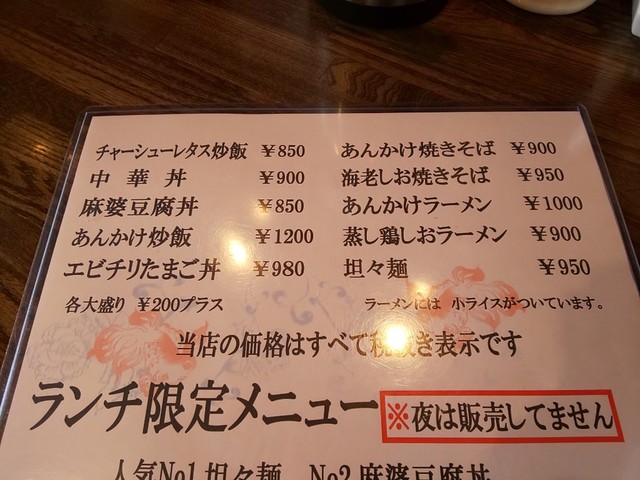 チャーシューレタス炒飯 ￥850
中華丼 ￥900
麻婆豆腐丼 ￥850
あんかけ炒飯 ￥1200
エビチリたまご丼 ￥980
各大盛り ￥200プラス
あんかけ焼きそば ￥900
海老しお焼きそば ￥950
あんかけラーメン ￥1000
蒸し鶏しおラーメン ￥900
坦々麺 ￥950
ラーメンには 小ライスがついています。
当店の価格はすべて税抜き表示です
ランチ限定メニュー ※夜は販売してません
人気No1 坦々麺 No2 麻婆豆腐丼